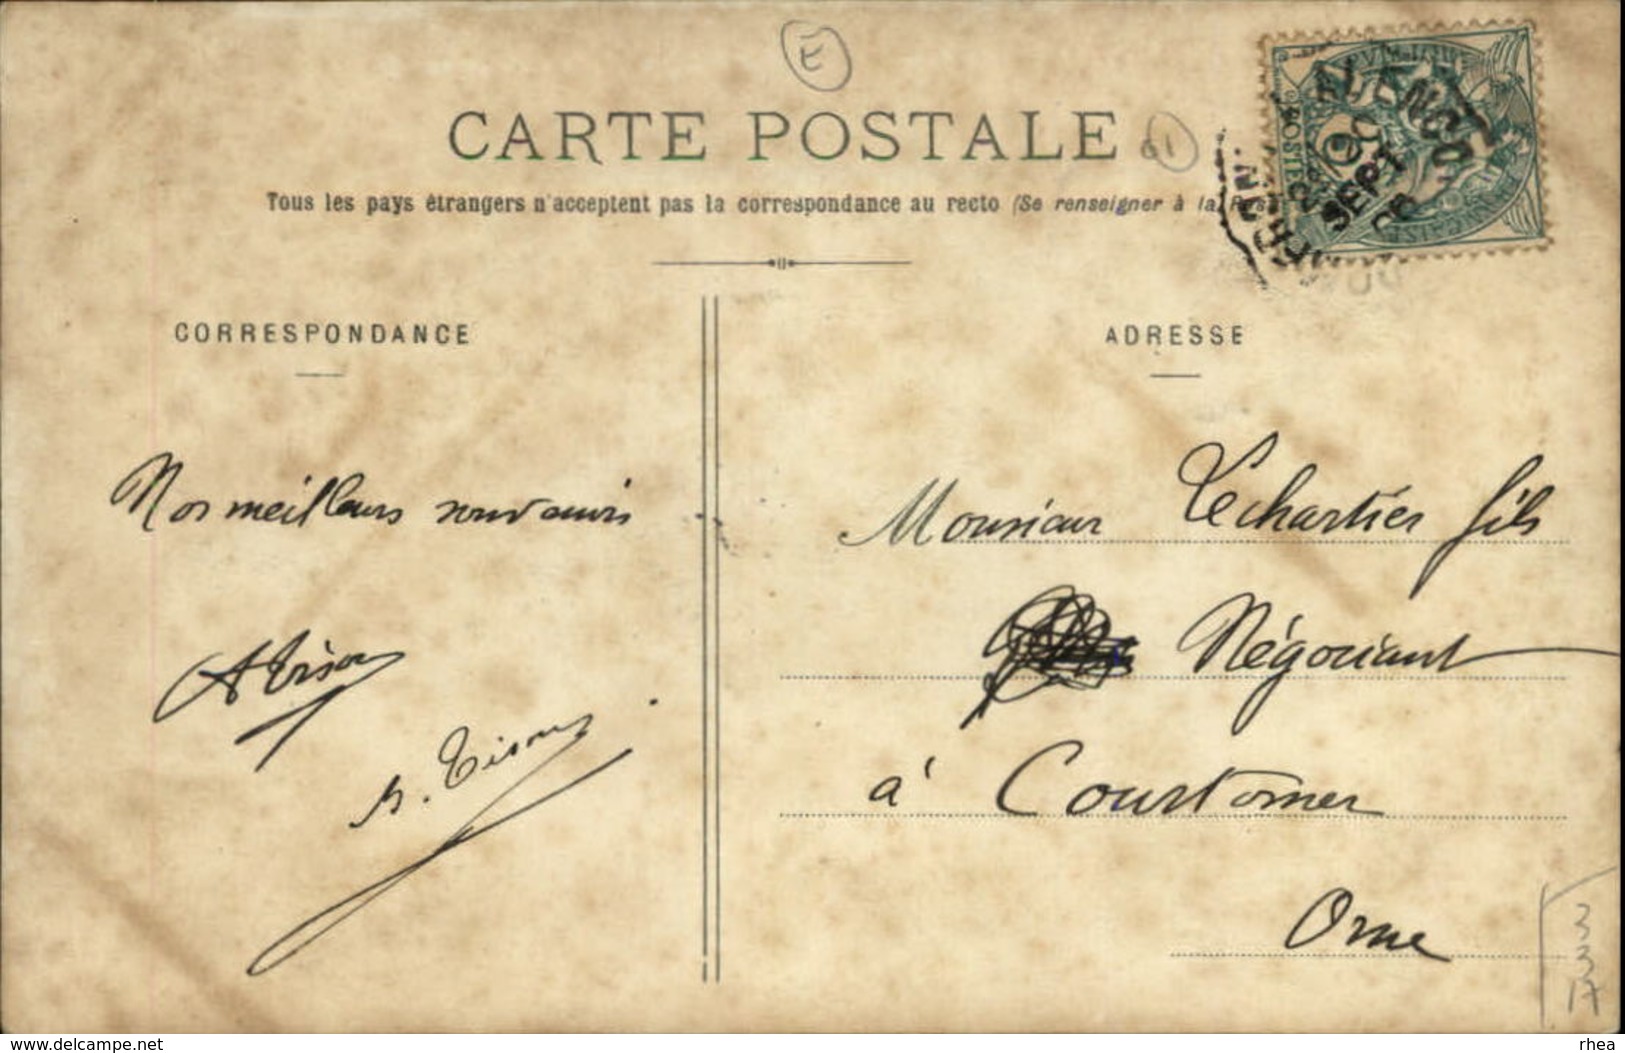 E
CARTE POSTALE
61
Tous les pays étrangers n'acceptent pas la correspondance au recto (Se renseigner à la
ALENCON
SEPT
POSTES
CORRESPONDANCE
ADRESSE
Nos meilleurs souvenirs
A Tison
B. Tison
Monsieur Lechartier fils
Négociant
à Courtomer
Orne
3
3
17
www.delcampe.net
rhea